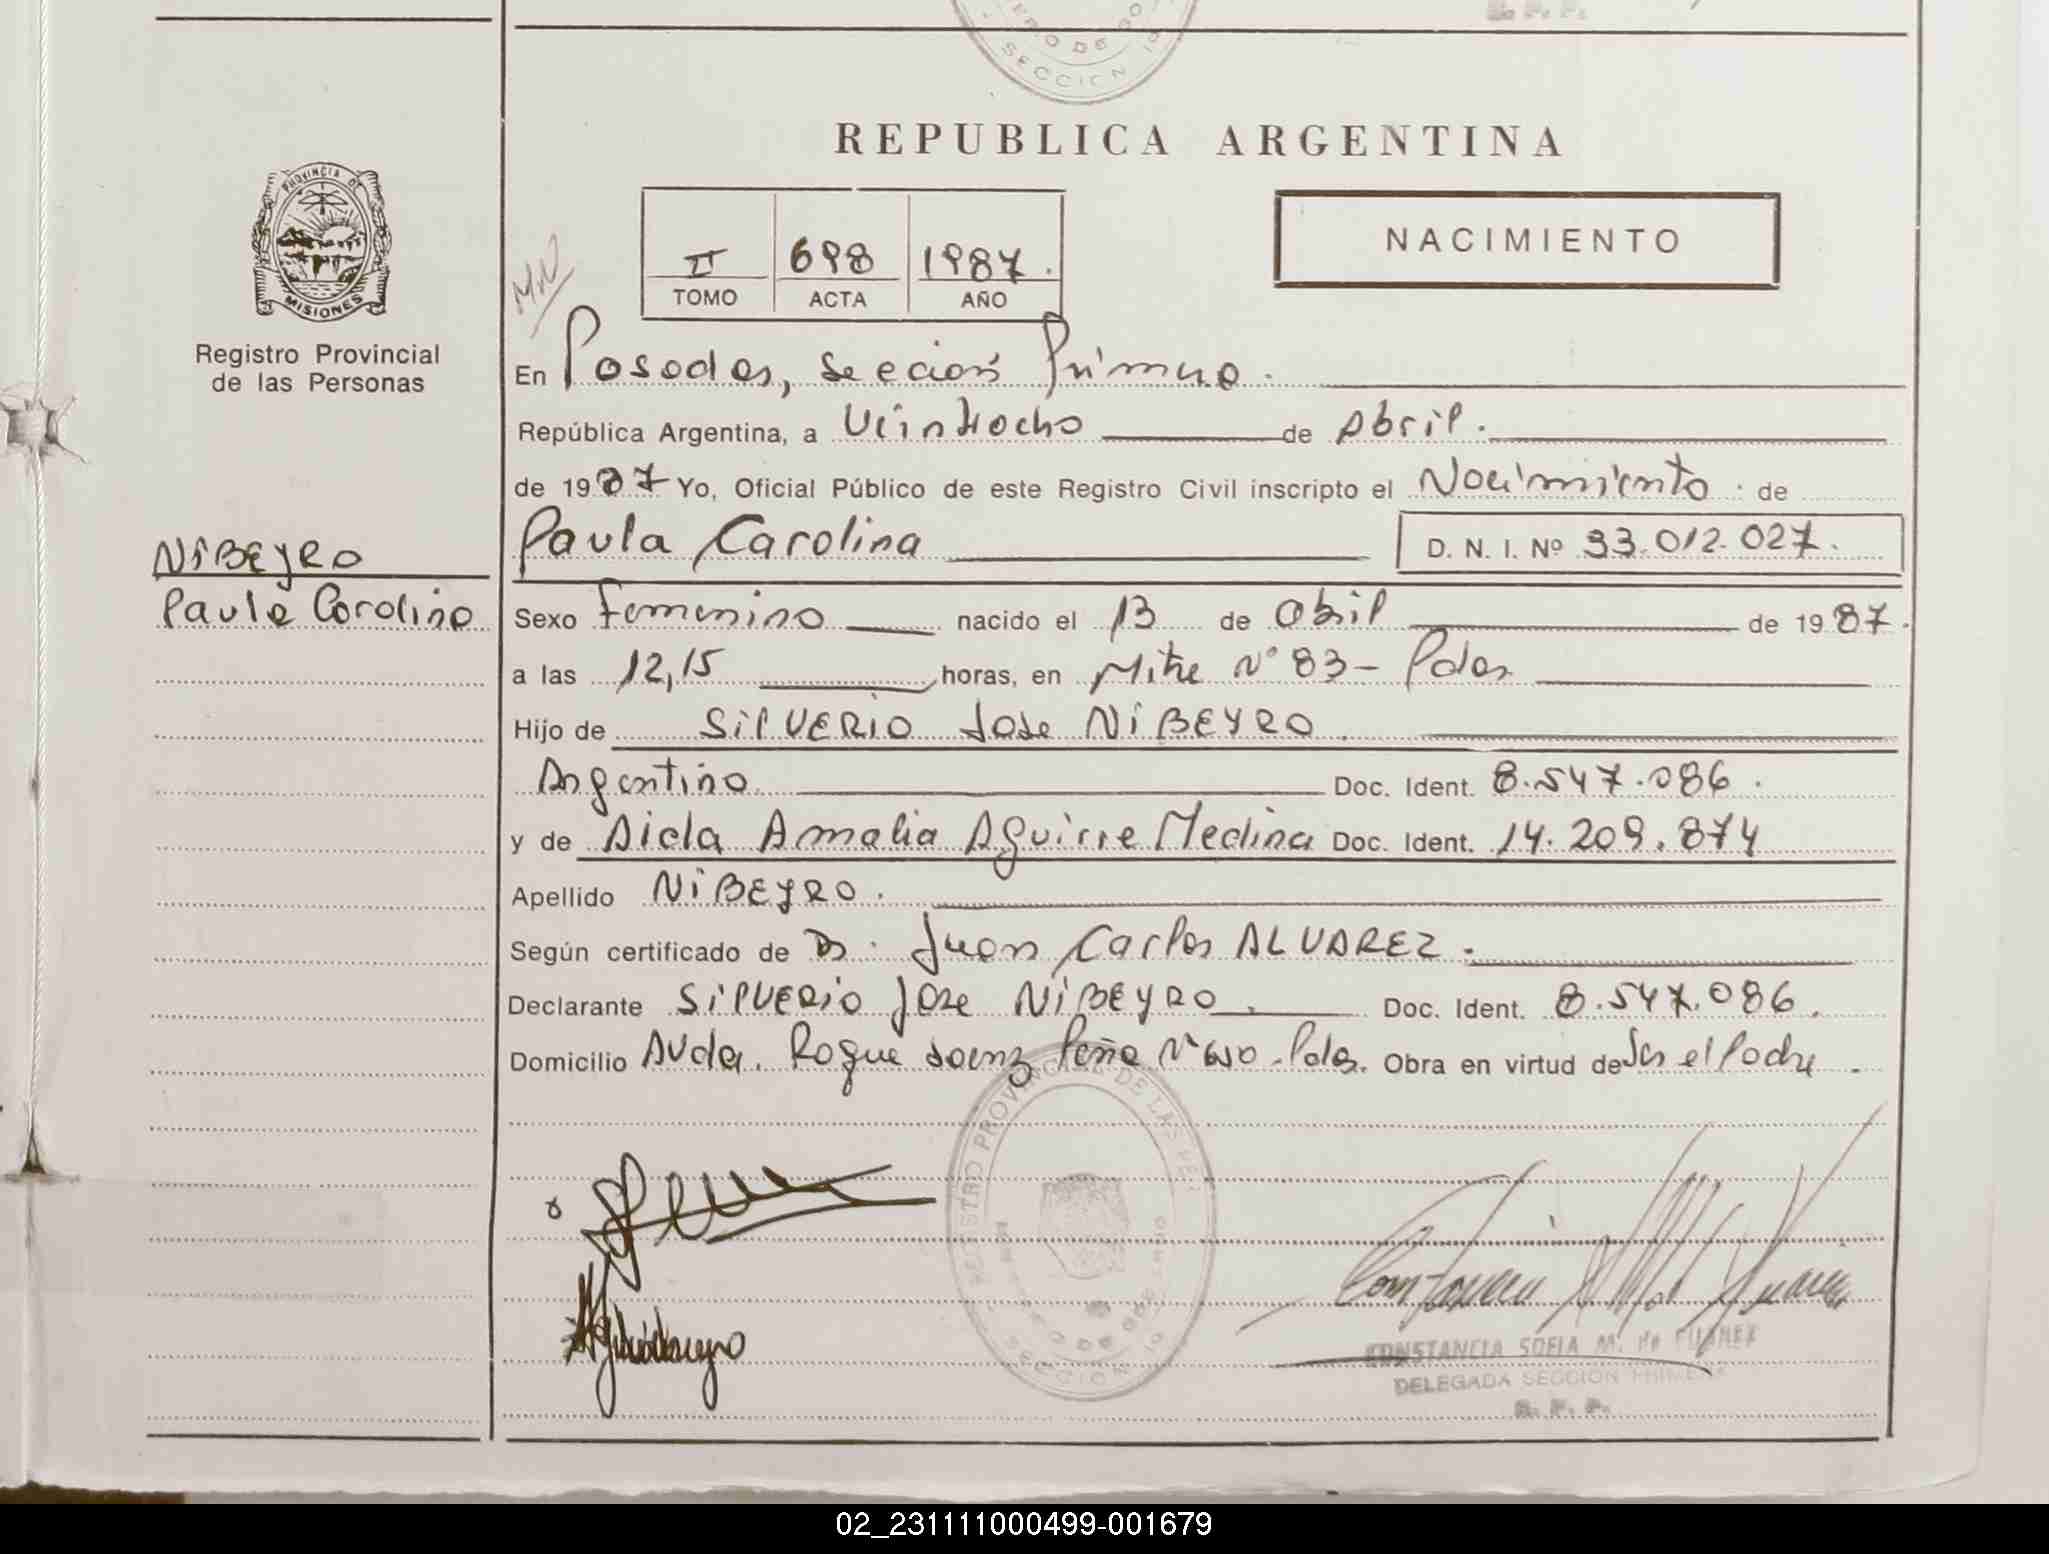 REPUBLICA ARGENTINA
PROVINCIA DE
MISIONES
Registro Provincial
de las Personas
II 698 1987.
TOMO ACTA AÑO
NACIMIENTO
En Posadas, Sección Primera.
República Argentina, a Veintiocho de Abril.
de 1987 Yo, Oficial Público de este Registro Civil inscripto el Nacimiento de
NiBEYRO
Paula Carolina
Paula Carolina D. N. I. Nº 33.012.027.
Sexo Femenino nacido el 13 de abril de 1987.
a las 12,15 horas, en Mitre Nº 83 - Pdas
Hijo de SilVERIO Jose NiBEYRO.
Argentino Doc. Ident. 8.547.086.
y de Aida Amalia Aguirre Medina Doc. Ident. 14.209.874
Apellido NiBEYRO.
Según certificado de Dr. Juan Carlos ALVAREZ.
Declarante SilVERiO Jose NiBEYRO. Doc. Ident. 8.547.086.
Domicilio Avda. Roque Saenz Peña Nº Pdas. Obra en virtud de Ser el Padre.
REGISTRO PROVINCIAL DE LAS PER
SECCION 1º
CONSTANCIA SOFIA M. de
DELEGADA SECCION PRIMERA
R. P. P.
02_231111000499-001679